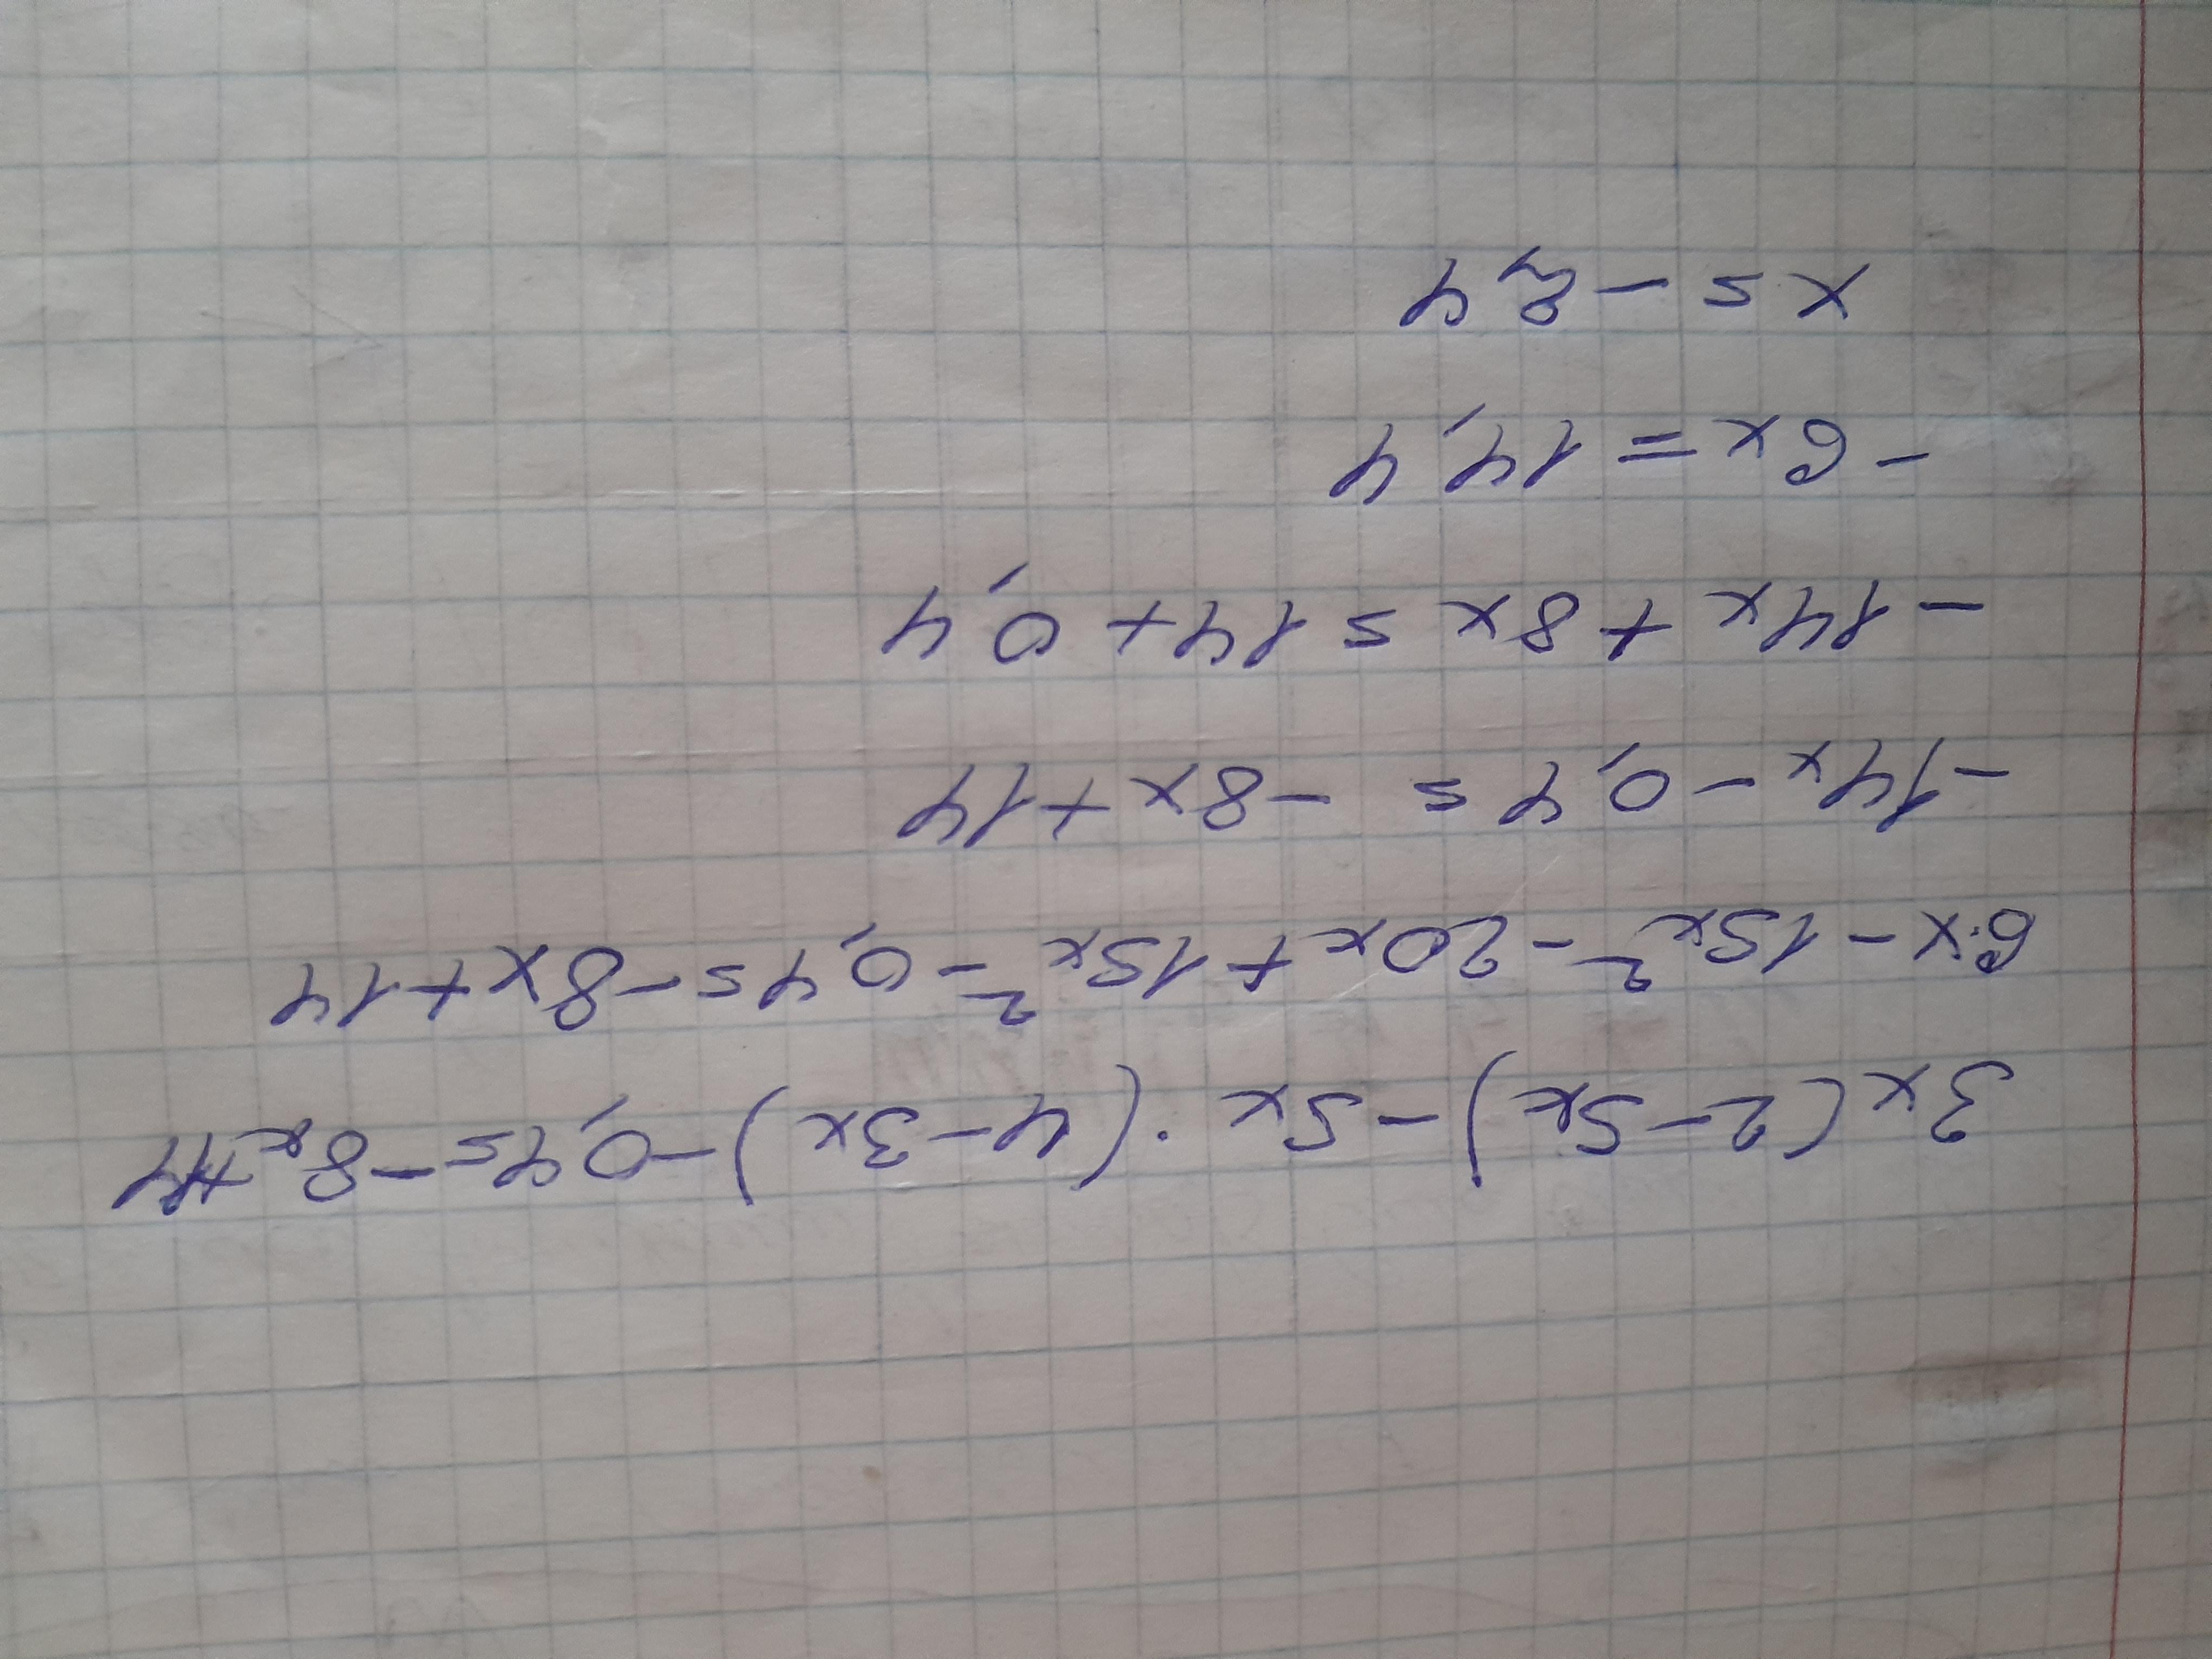 3x(2-5x)-5x·(4-3x)-0,4=-8x+14
6x-15x²-20x+15x²-0,4=-8x+14
-14x-0,4=-8x+14
-14x+8x=14+0,4
-6x=14,4
x=-2,4